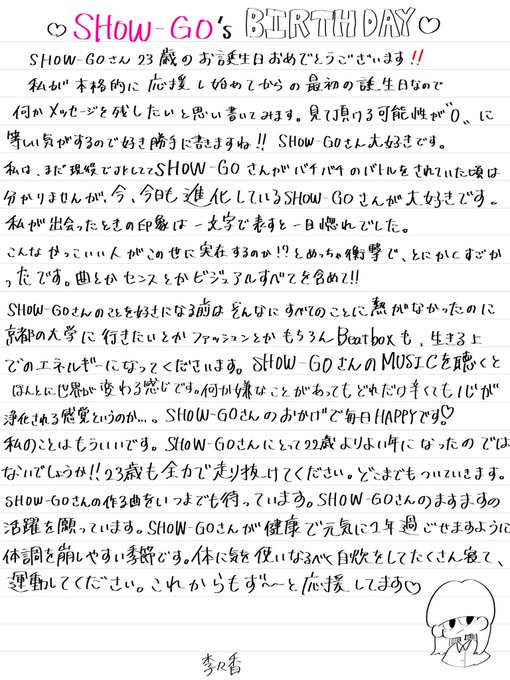 ♡ SHOW-GO's BIRTHDAY ♡
SHOW-GOさん23歳のお誕生日おめでとうございます!!
私が本格的に応援し始めてからの最初の誕生日なので
何かメッセージを残したいと思い書いてみます。見て頂ける可能性が"0"に
等しい気がするので好き勝手に書きますね!! SHOW-GOさん大好きです。
私は、まだ現役でJHしててSHOW-GOさんがバチバチのバトルをされていた頃は
分かりませんが、今、今日も進化しているSHOW-GOさんが大好きです。
私が出会ったときの印象は一文字で表すと一目惚れでした。
こんなかっこいい人がこの世に実在するのか!?とめっちゃ衝撃で、とにかくすごか
ったです。曲とかセンスとかビジュアルすべてを含めて!!
SHOW-GOさんのことを好きになる前はそんなにすべてのことに熱がなかったのに
京都の大学に行きたいとかファッションとかもちろんBeatboxも、生きる上
でのエネルギーになってくださいます。SHOW-GOさんのMUSICを聴くと
ほんとに世界が変わる感じです。何か嫌なことがあってもどれだけ辛くても心が
浄化される感覚というのか...。SHOW-GOさんのおかげで毎日HAPPYです♡
私のことはもういいです。SHOW-GOさんにとって22歳よりよい年になったのでは
ないでしょうか!!23歳も全力で走り抜けてください。どこまでもついていきます。
SHOW-GOさんの作る曲をいつまでも待っています。SHOW-GOさんのますますの
活躍を願っています。SHOW-GOさんが健康で元気に1年過ごせますように
体調を崩しやすい季節です。体に気を使いなるべく自炊をしてたくさん寝て、
運動してください。これからもず〜〜と応援してます♡
李々香